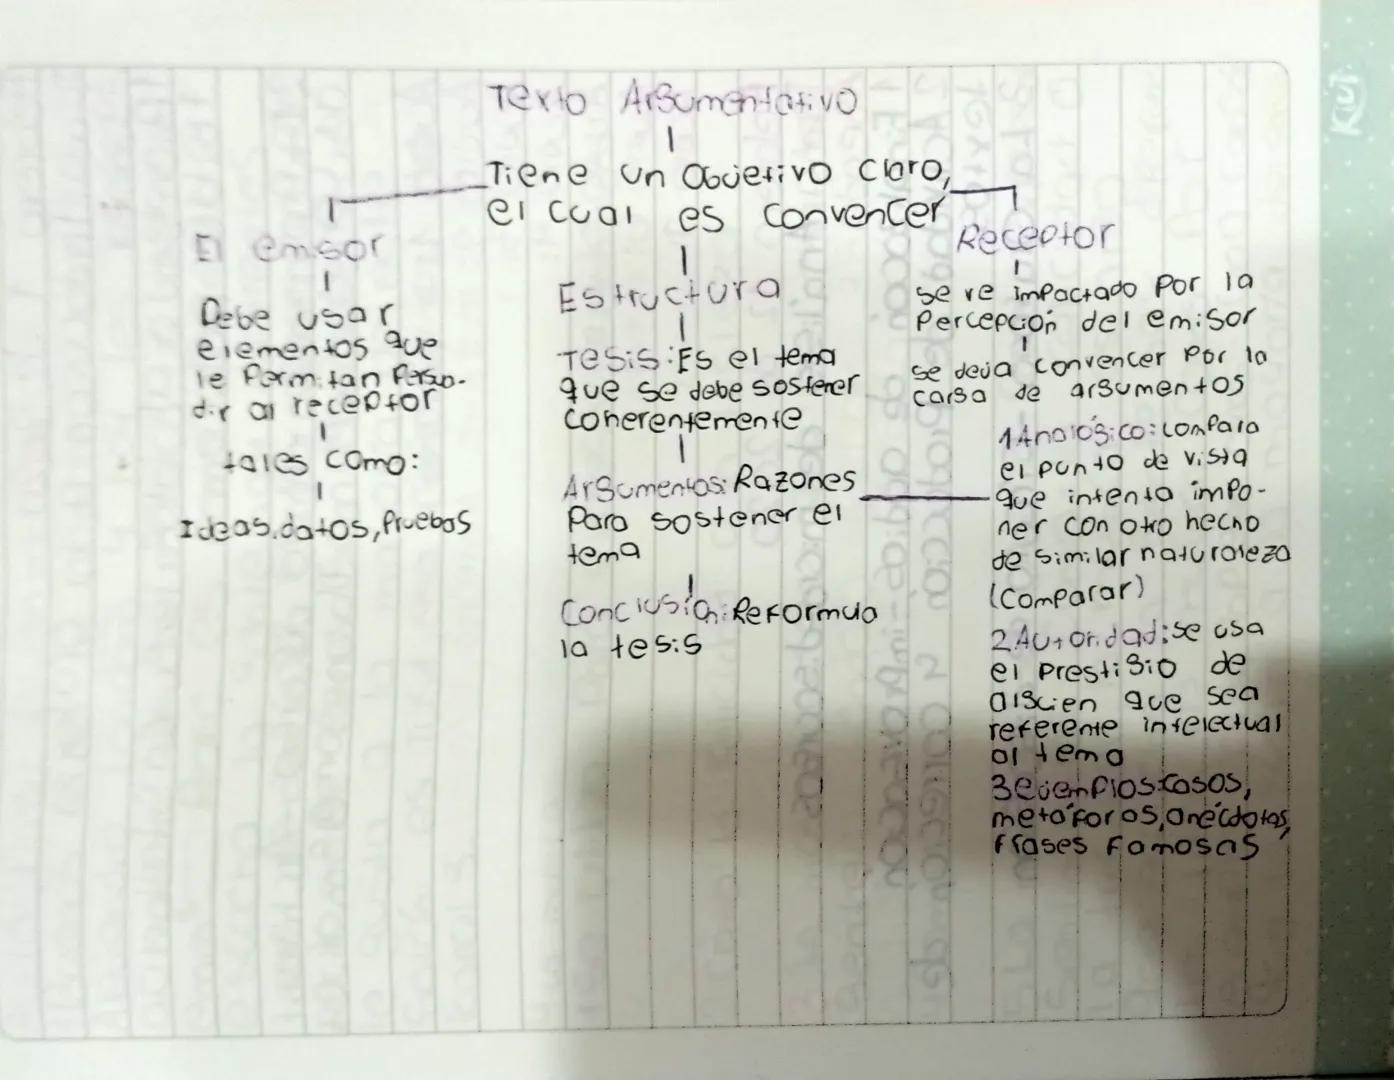 Texto Argumentativo
Tiene un Objetivo Claro,
el cual es convencer
El emisor
Debe usar
elementos que
le permitan persua-
dir al receptor
tales como:
Ideas, datos, Pruebas
Estructura
Tesis: Es el tema
que se debe sostener
coherentemente
Argumentos: Razones
Para sostener el
tema
Conclusión: Reformula
la tesis
Receptor
se ve impactado por la
Percepción del emisor
se deja convencer por la
carga de argumentos
1 Analógico: Compara
el punto de vista
que intenta impo-
ner con otro hecho
de similar naturaleza
(Comparar)
2. Autoridad: se usa
el prestigio de
alguien que sea
referente intelectual
al tema
3 Ejemplos: casos,
metáforas, anécdotas,
frases famosas
Kiut